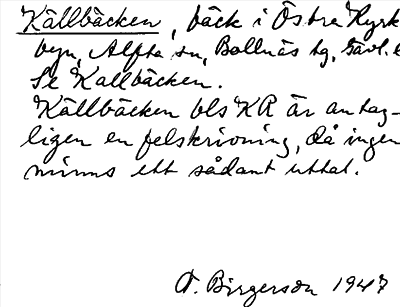 Källbäcken, bäck i Östra Kyrk
byn, Alfta sn, Bollnäs tg, Gävl. l
Se Kallbäcken.
Källbäcken bls KR är antag-
ligen en felskrivning, då ingen
minns ett sådant uttal.
A. Birgerson 1947